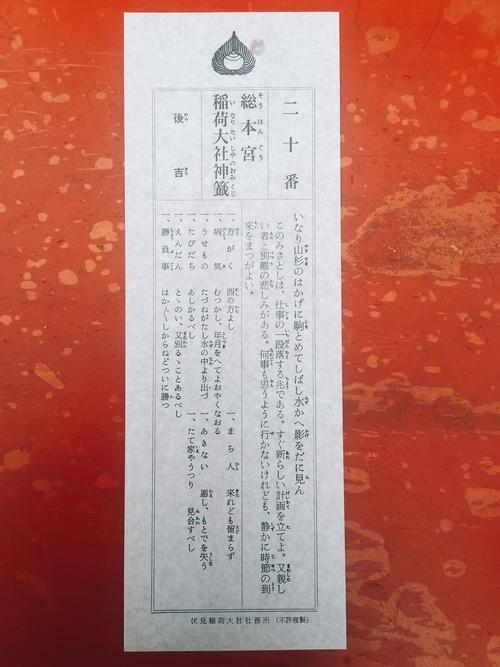 二十番
総本宮
稲荷大社神籤
後吉
いなり山杉のはかげに駒とめてしばし水かへ影をだに見ん
このみさとしは、仕事の一段落する兆である。すぐ新らしい計画を立てよ。又親し
い者と別離の悲しみがある。何事も思うように行かないけれども、静かに時節の到
来をまつがよい。
一、方がく 西の方よし
一、病気 むつかし、年月をへてよおやくなおる
一、うせもの たづねがたし水の中より出づ
一、たびだち あしかるべし
一、えんだん とゝのい、又別るゝことあるべし
一、勝負事 はか〴〵しからねどついに勝つ
一、まち人 来れども留まらず
一、あきない 悪し、もとでを失う
一、たて家やうつり 見合すべし
伏見稲荷大社社務所 (不許複製)